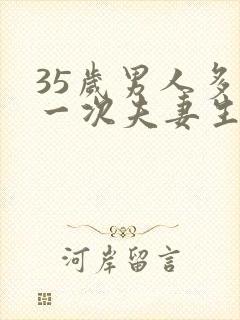 35岁男人多
一次夫妻生
河岸留言